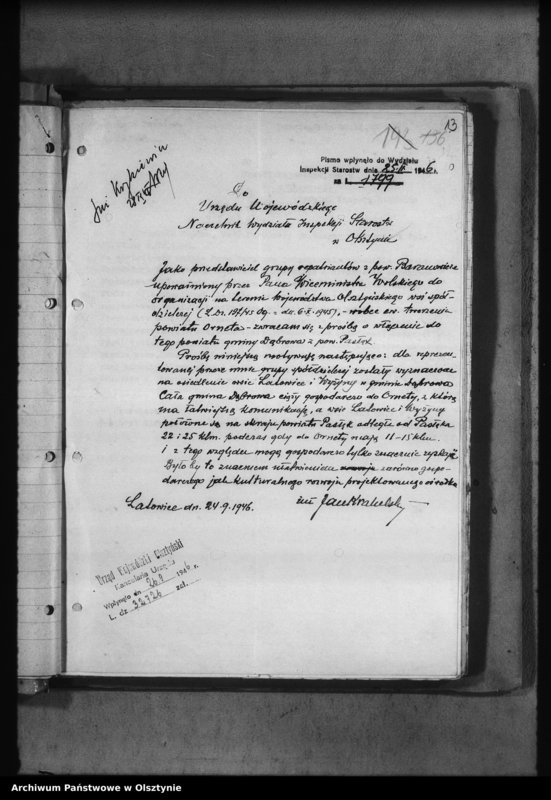 13
143 136
Pismo wpłynęło do Wydziału
Inspekcji Starostw dnia 25.IX. 1946 r.
za L. 1799
Do
Urzędu Wojewódzkiego
Naczelnik Wydziału Inspekcji Starostw
w Olsztynie
Jako przedstawiciel grupy repatriantów z pow. Baranowicze
upoważniony przez Pana Wiceministra Wolskiego do
organizacji na terenie Województwa Olsztyńskiego wsi spół-
dzielczej (L.Dz. 187/45 Og. z dn. 6-X-1945), wobec ew. tworzenia
powiatu Orneta - zwracam się z prośbą o włączenie do
tego powiatu gminy Dąbrowa z pow. Pasłęk.
Prośbę niniejszą motywuję następująco: dla reprezen-
towanej przeze mnie grupy spółdzielczej zostały wyznaczone
na osiedlenie wsie Latowice i Wyżyny w gminie Dąbrowa
Cała gmina Dąbrowa ciąży gospodarczo do Ornety, z którą
ma łatwiejszą komunikację, a wsie Latowice i Wyżyny
położone są na skraju powiatu Pasłęk odległe od Pasłęka
22 i 25 klm. podczas gdy do Ornety mają 11-15 klm.
i z tego względu mogą gospodarczo tylko znacznie zyskać
Było by to znacznem ułatwieniem zarówno gospo-
darczego jak kulturalnego rozwoju projektowanego ośrodka
Latowice dn. 24.9.1946. inż Jan
Urząd Wojewódzki Olsztyński
Kancelaria Urzędu
Wpłynęło dn. 26.9 1946 r.
L. dz. 32726 zał.
Archiwum Państwowe w Olsztynie